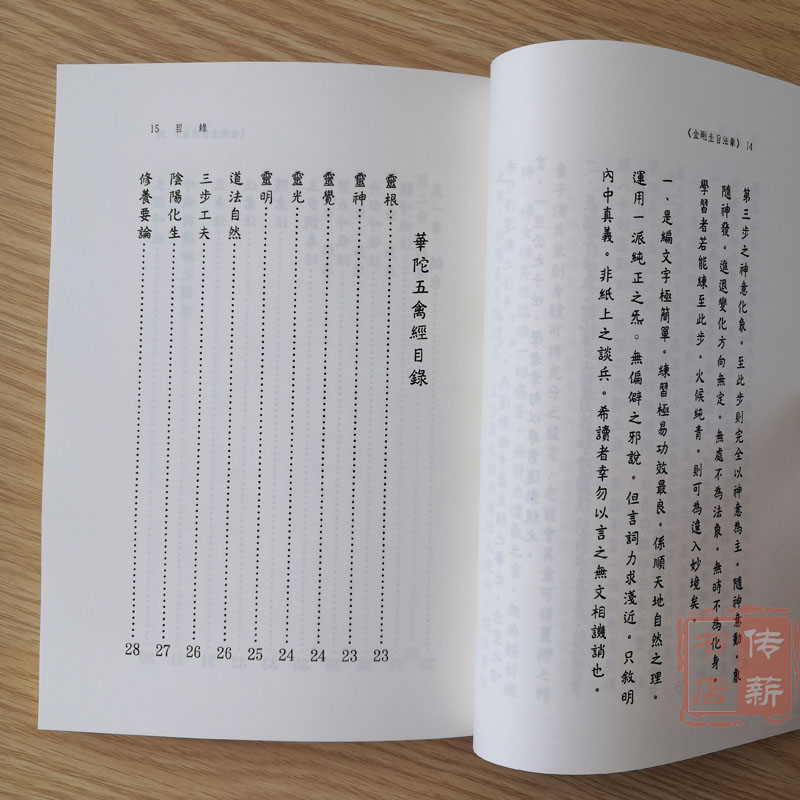 《金剛圭旨法象》 14
第三步之神意化象。至此步則完全以神意為主。隨神意動。象
隨神發。進退變化方向無定。無處不為法象。無時不為化身。
學習者若能練至此步。火候純青。則可為達入妙境矣。
一、是編文字極簡單。練習極易功效最良。係順天地自然之理。
運用一派純正之炁。無偏僻之邪說。但言詞力求淺近。只敘明
內中真義。非紙上之談兵。希讀者幸勿以言之無文相譏誚也。
15 目錄
華陀五禽經目錄
靈根 23
靈神 23
靈覺 24
靈光 24
靈明 25
道法自然 26
三步工夫 26
陰陽化生 27
修養要論 28
传薪
书店